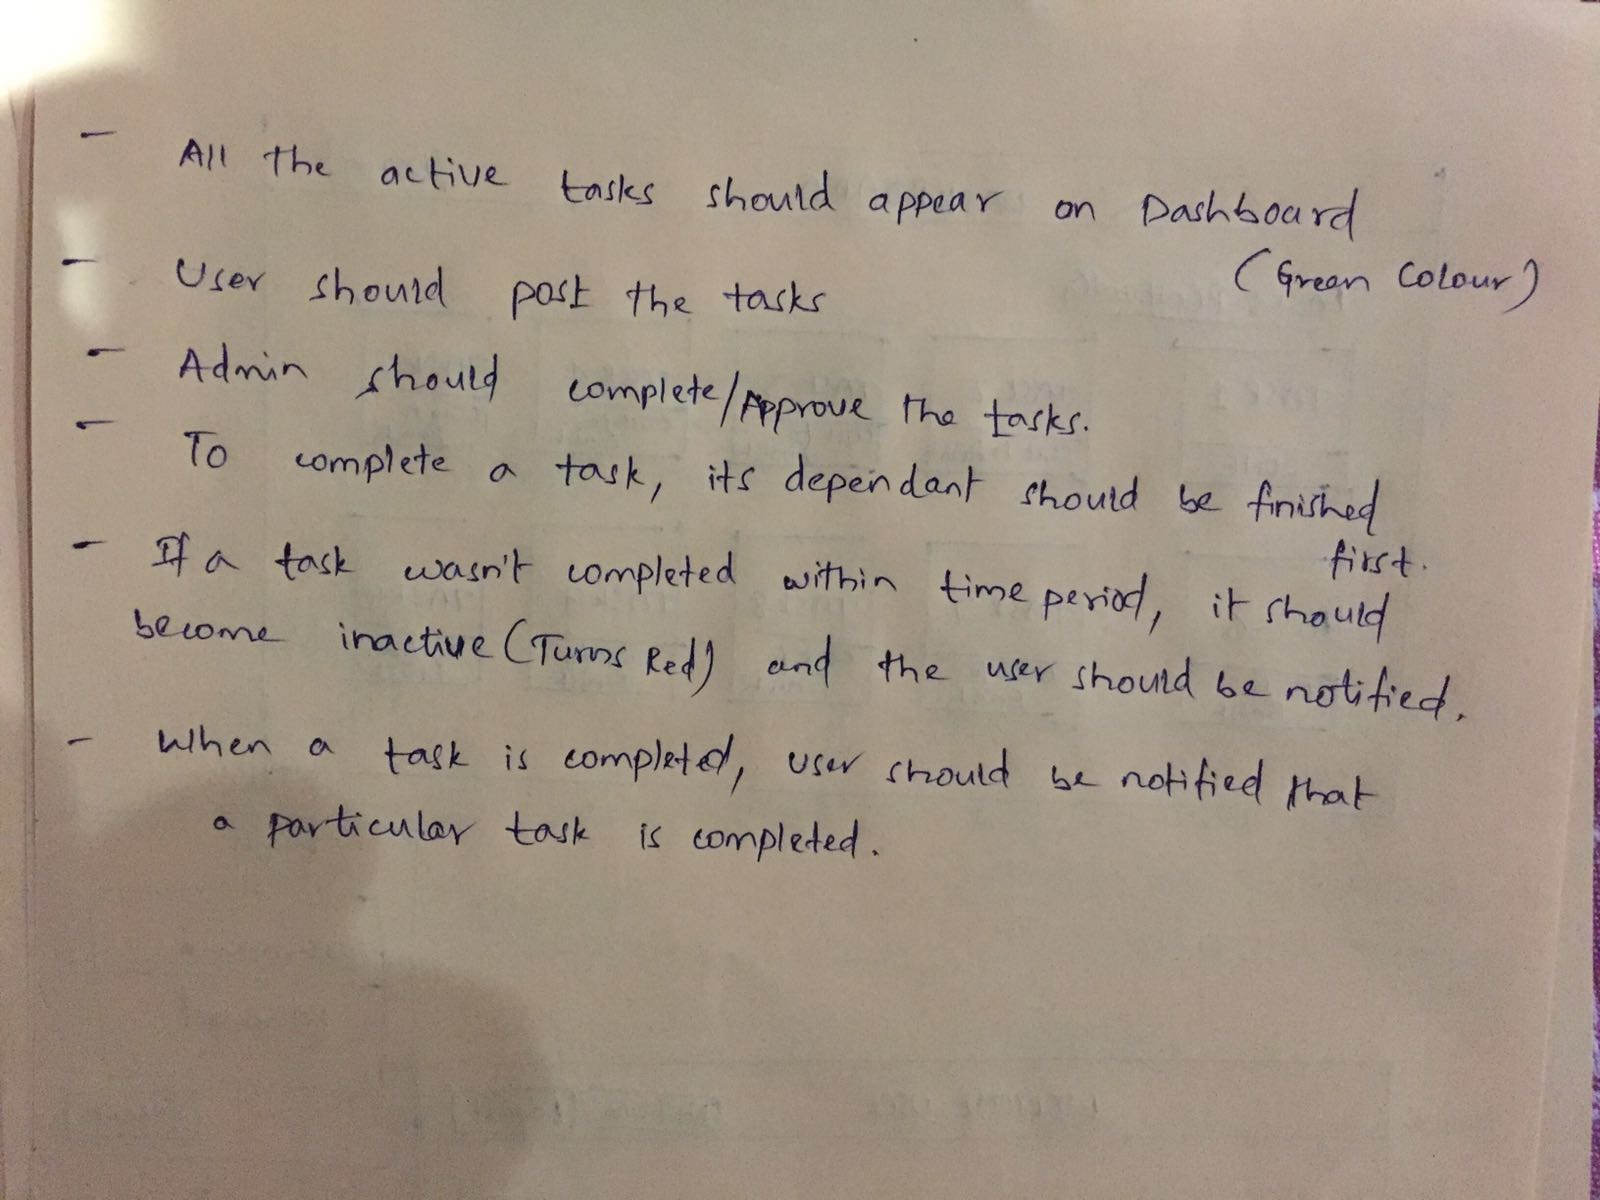 - All the active tasks should appear on Dashboard
(Green Colour)
- User should post the tasks
- Admin should complete/Approve the tasks.
- To complete a task, its dependant should be finished
first.
- If a task wasn't completed within time period, it should
become inactive (Turns Red) and the user should be notified.
- When a task is completed, user should be notified that
a particular task is completed.